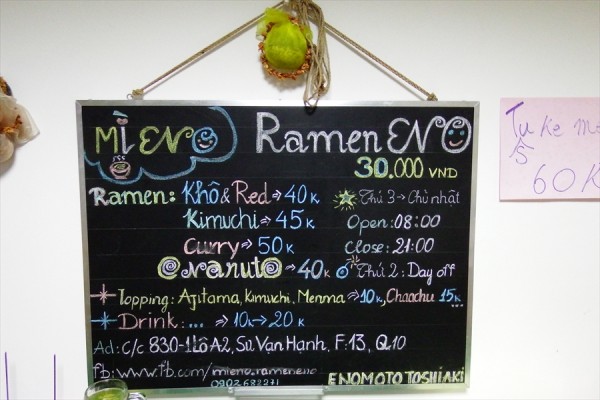 MÌ ENO
Ramen ENO
30.000 VND
Ramen: Khô & Red → 40K
Kimuchi → 45K
Curry → 50K
Naruto → 40K
Thứ 3 → Chủ nhật
Open: 08:00
Close: 21:00
Thứ 2: Day off
Topping: Ajitama, Kimuchi, Menma → 10K, Chaachu 15K ...
Drink: ... → 10K → 20K
Ad: C/c 830-1 Lô A2, Sư Vạn Hạnh, F:13, Q10
fb: www.fb.com/mieno.rameneno
ENOMOTO TOSHIAKI
60K